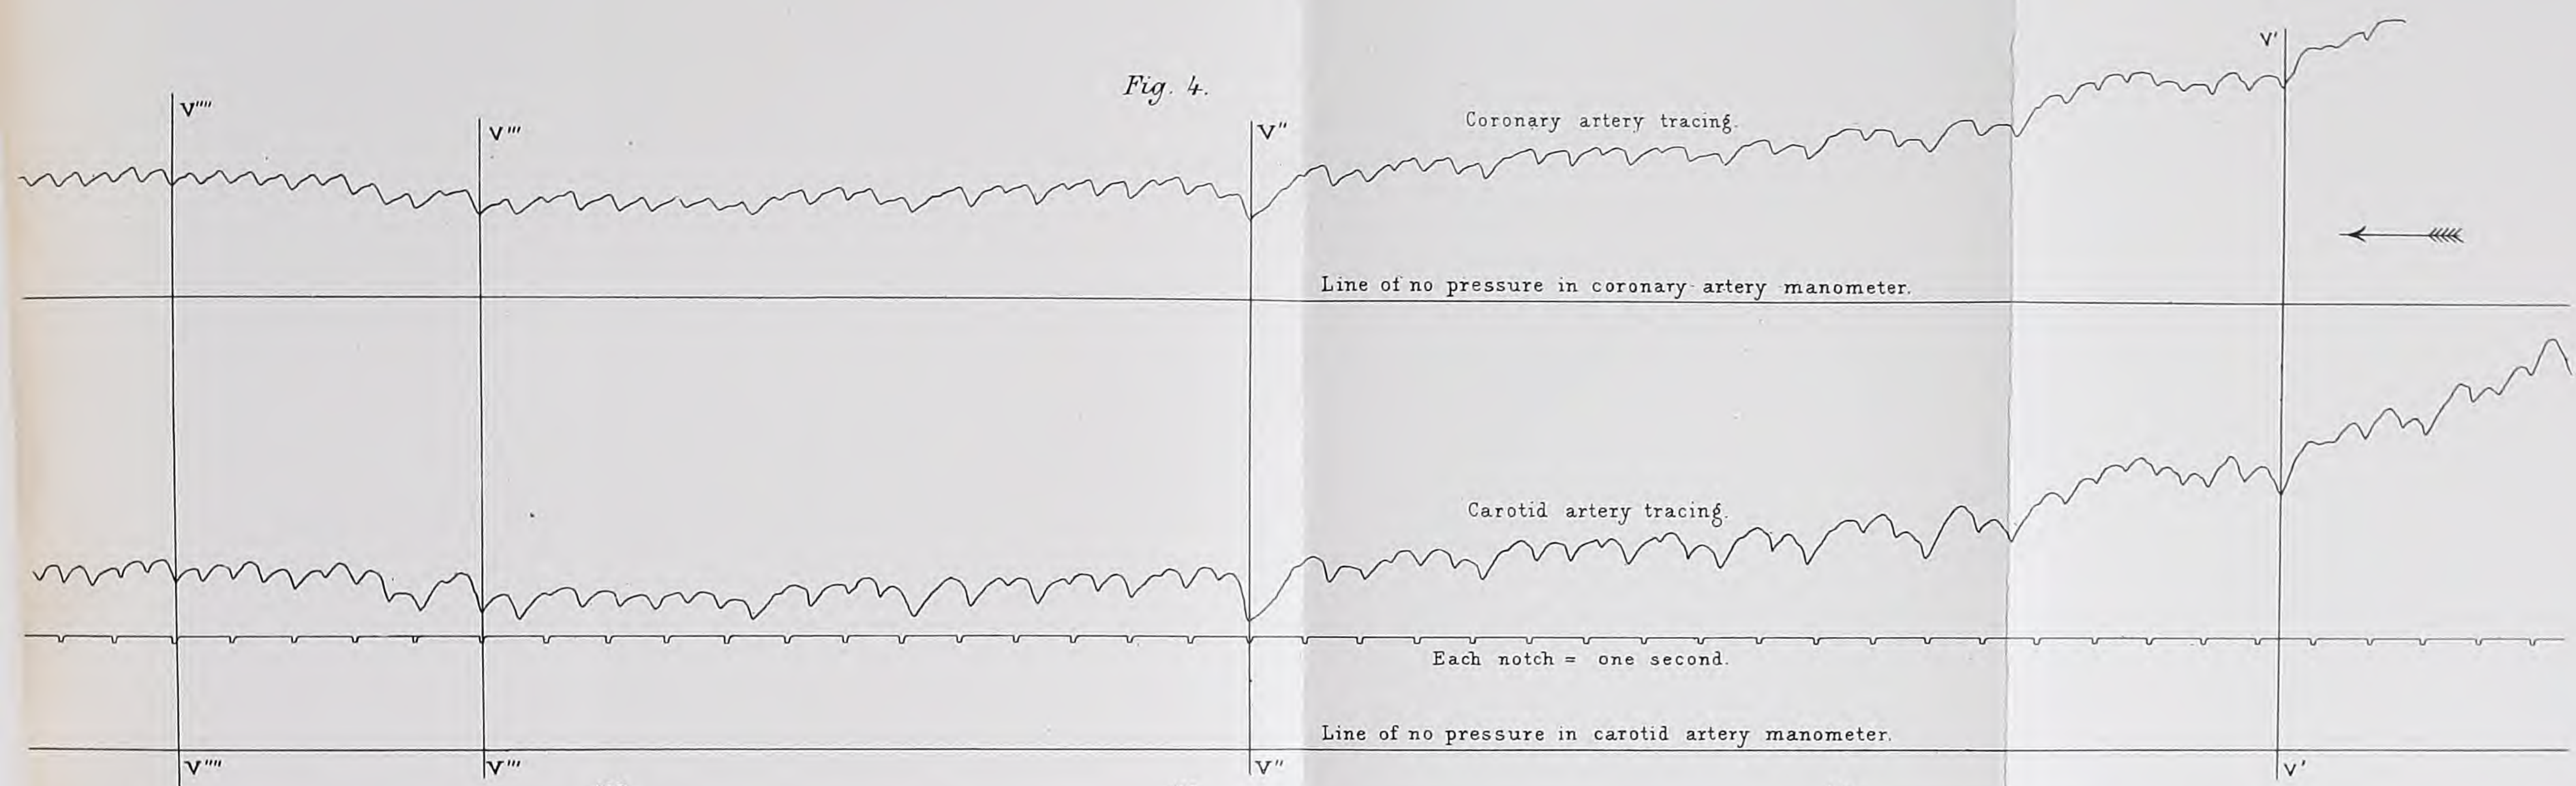 V'
Fig. 4.
V''''
Coronary artery tracing.
V'''
V''
Line of no pressure in coronary artery manometer.
Carotid artery tracing.
Each notch = one second.
Line of no pressure in carotid artery manometer.
V''''
V'''
V''
V'